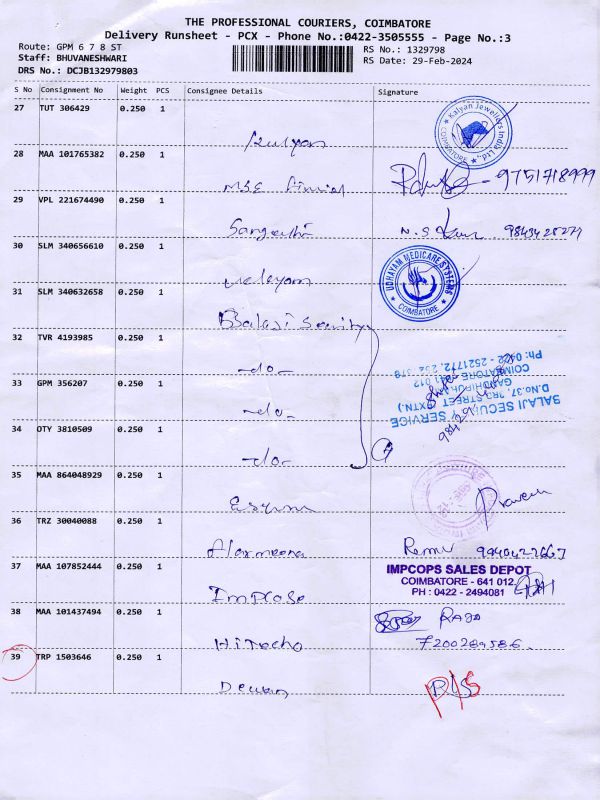 THE PROFESSIONAL COURIERS, COIMBATORE
Delivery Runsheet - PCX - Phone No.:0422-3505555 - Page No.:3
Route: GPM 6 7 8 ST
RS No.: 1329798
Staff: BHUVANESHWARI
RS Date: 29-Feb-2024
DRS No.: DCJB132979803
S No Consignment No Weight PCS Consignee Details Signature
27 TUT 306429 0.250 1
Kalyan Jewellers India Ltd., COIMBATORE
Kalyan
28 MAA 101765382 0.250 1
9751718999
MSE
29 VPL 221674490 0.250 1
Sangeetha
30 SLM 340656610 0.250 1
UDHAYAM MEDICARE SYSTEMS COIMBATORE
Udayam
31 SLM 340632658 0.250 1
Balaji Security
32 TVR 4193985 0.250 1
-do-
33 GPM 356207 0.250 1
-do-
34 OTY 3810509 0.250 1
-do-
BALAJI SECURITY SERVICE
D.No.37, 3RD STREET EXTN.)
GANDHIPURAM
COIMBATORE 641 012
Ph: 0422 - 2521772
35 MAA 864048929 0.250 1
Praveen
36 TRZ 30040088 0.250 1
37 MAA 107852444 0.250 1
IMPCOPS SALES DEPOT
COIMBATORE - 641 012.
PH : 0422 - 2494081
38 MAA 101437494 0.250 1
RAJA
HiTecho
7200289586
39 TRP 1503646 0.250 1
Dewan